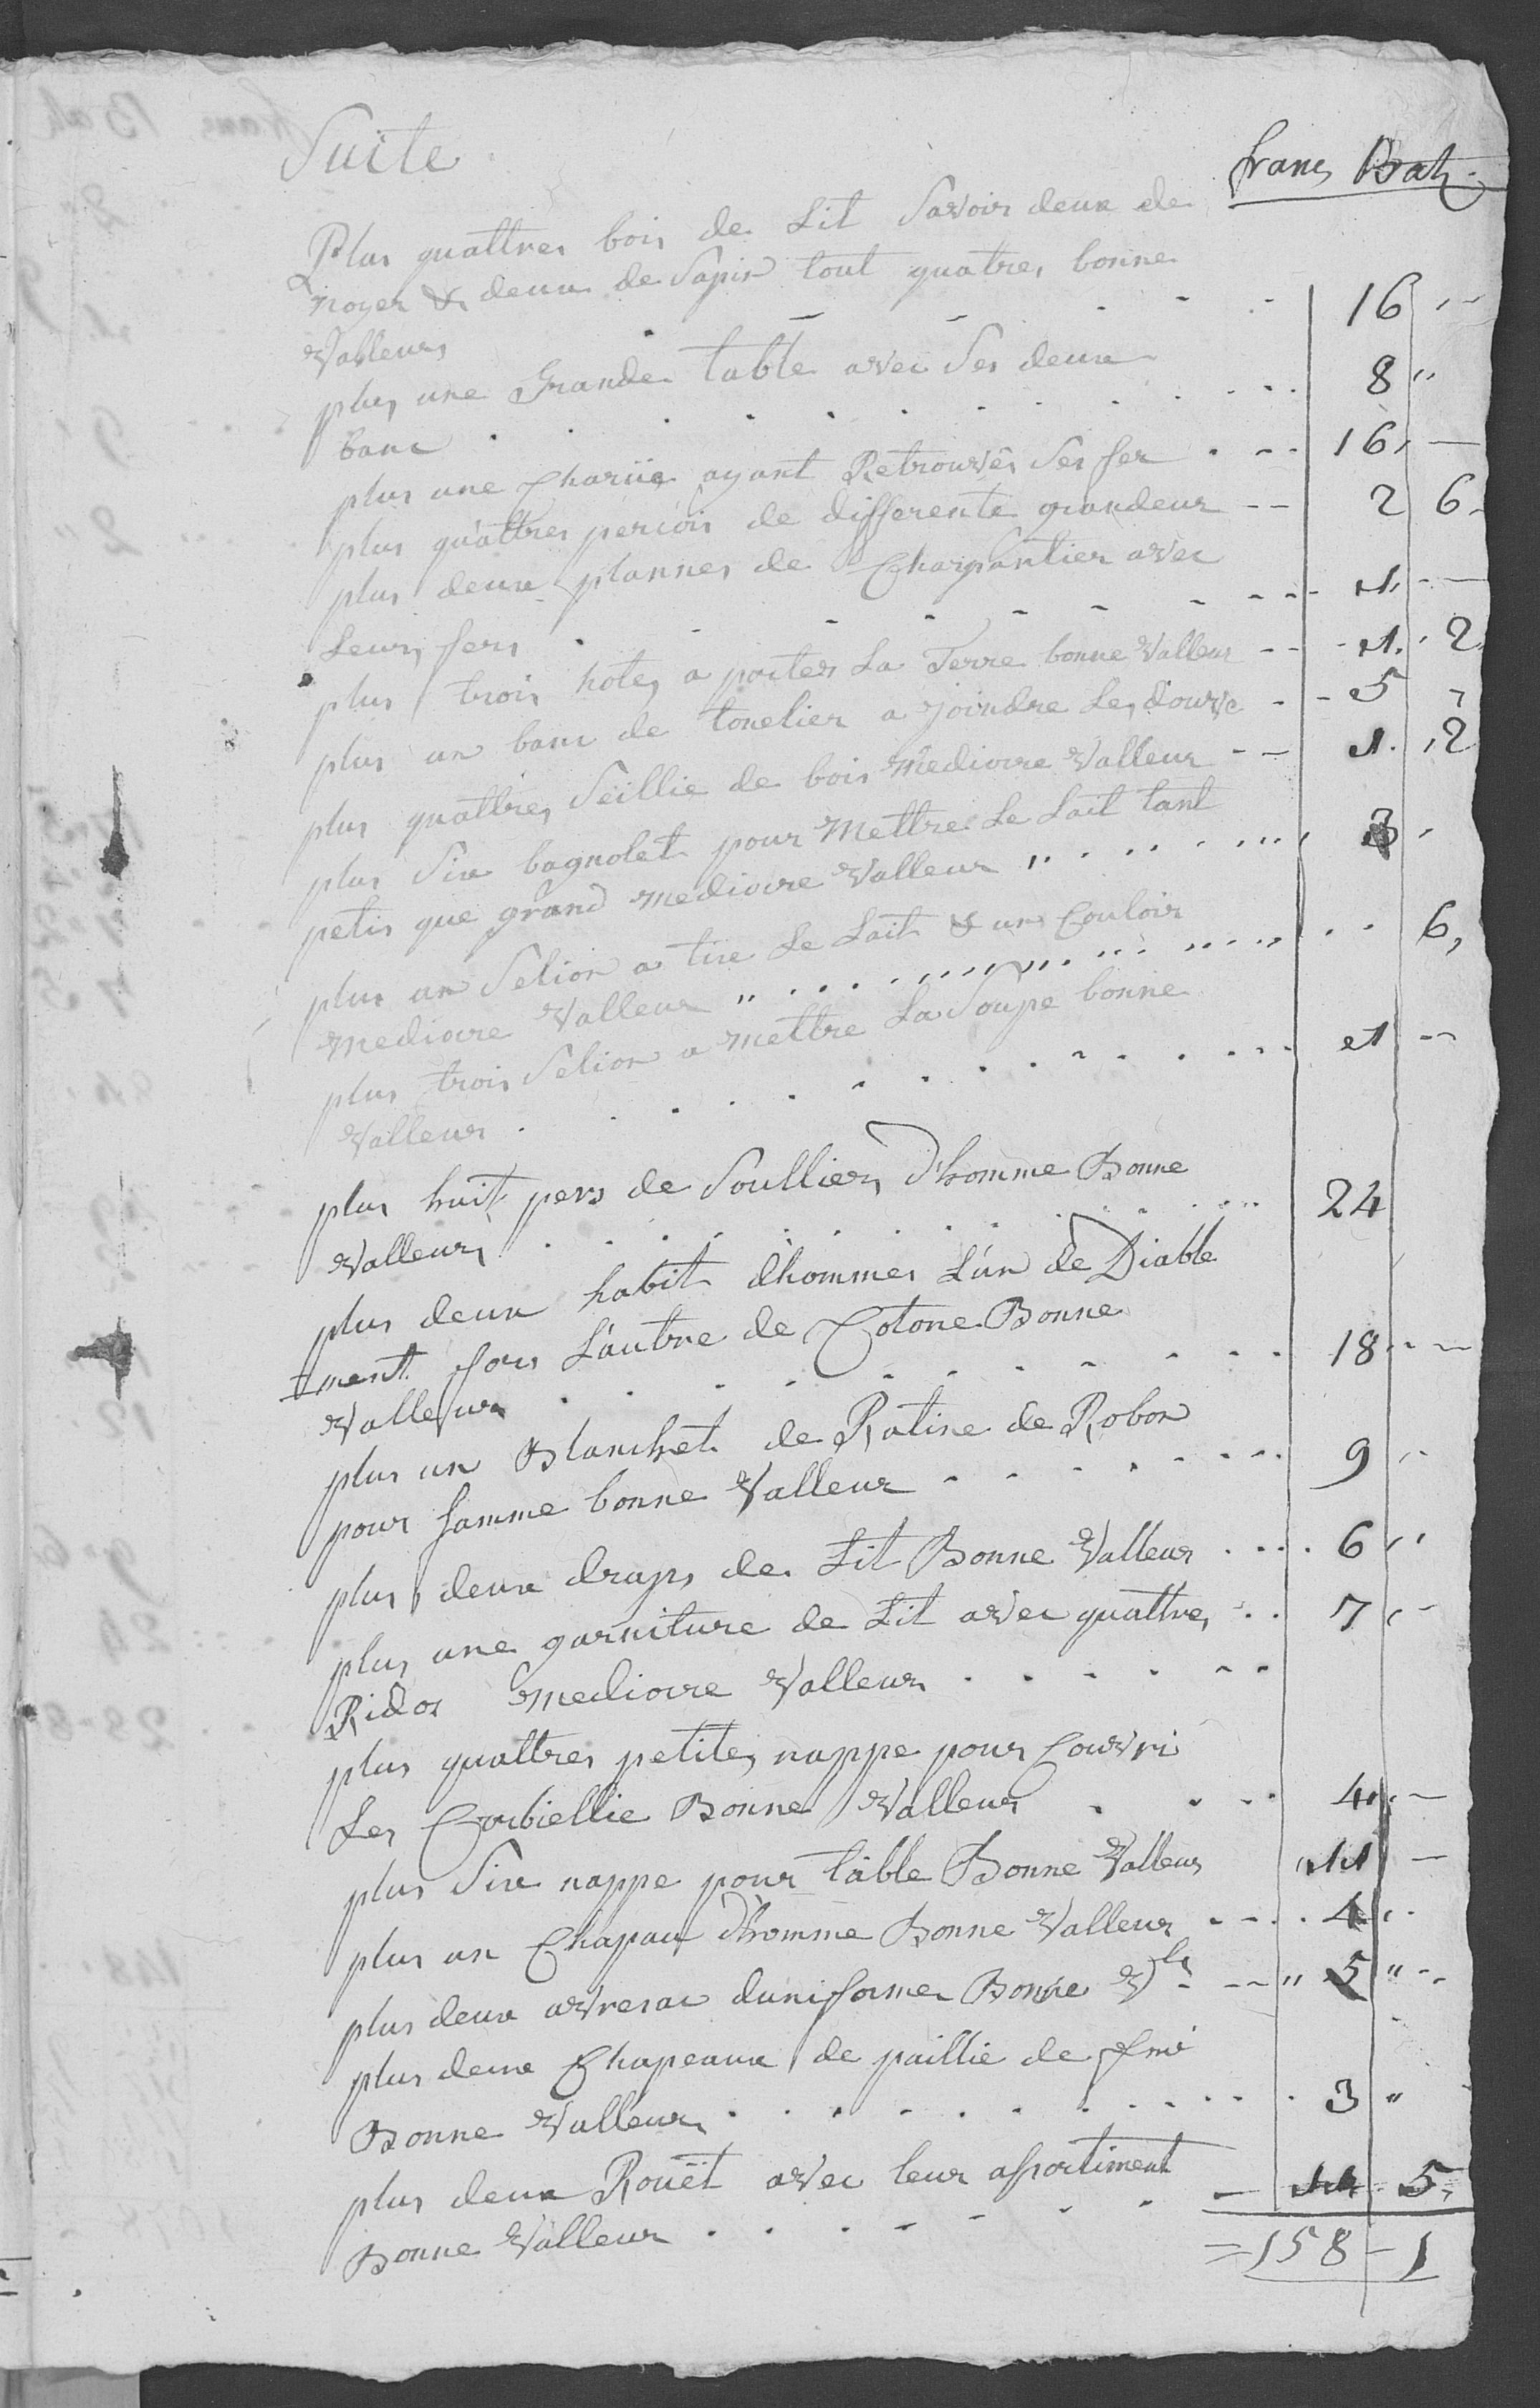 Suite
francs Batz.
Plus quattres bois de Lit Savoir deux de
noyer & deux de Sapin tout quatres bonne
Valleurs - - - - 16 --
plus une Grande table avec Ses deux
banc . . . . . . . . 8 "
plus une Charüe ayant Retrouvés Ses fer . -- 16, —
plus quattres percoir de differente grandeur -- 2 6-
plus deux plannes de Charpantier avec
Leurs fers . - - - - - - 1, - —
plus trois hotes a porter La Terre bonne Valleur -- 1. 2.
plus un banc de tonelier a joindre Les douve -- 5 ,
plus quattres Seillie de bois Mediocre Valleur -- 1. ,2
plus Six bagnolet pour Mettre Le Lait tant
petis que grand mediocre Valleur " . . . . . . 3 -
plus un Selion a tire Le Lait & un Couloir
Mediocre Valleur " . . . . . . . . . 6,
plus trois Selion a mettre La Soupe bonne
Valleur . . . . . . . . . 1 --
plus huit pers de Soulliers d'homme Bonne
Valleurs . . . . . . . . . 24
plus deux habit d'hommes L'un de Diable
ment fors L'autre de Cotone Bonne
Valleurs . . - - - - - - 18 - --
plus un Blanchet de Ratine de Robon
pour famme bonne Valleur - - - - - - - 9 --
plus deux draps de Lit Bonne Valleur . . . . 6 "
plus une garniture de Lit avec quattres . . 7 --
Ridos Mediocre Valleurs . . . . - -
plus quattres petites nappe pour Couvri
Les Corbiellie Bonne Valleurs . . - - 4, —
plus Six nappe pour table Bonne Valleurs 11 —
plus un Chapau d'homme Bonne Valleur . - . . 4 "
plus deux avresac duniforme Bonne Vlr - -- " 5 " --
plus deux Chapeaux de paillie de
Bonne Valleurs . . . . . . . . . . 3 "
plus deux Rouët avec leur assortiment
Bonne Valleur . . . - - - - — 11 5,
= 158 - 1